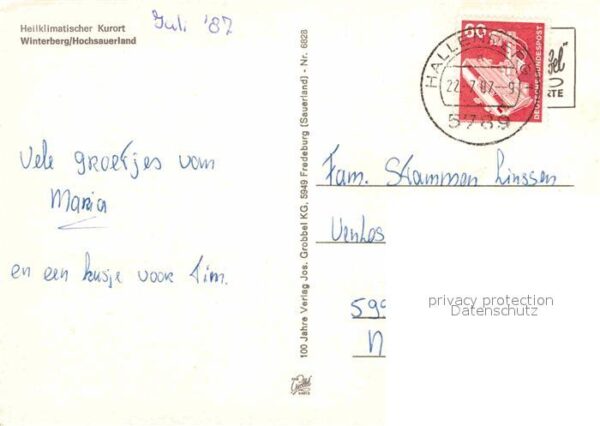 Juli '87
Heilklimatischer Kurort
Winterberg/Hochsauerland
Vele groetjes van
Maria
en een kusje voor Tim.
100 Jahre Verlag Jos. Grobbel KG, 5949 Fredeburg (Sauerland) - Nr. 6828
60
DEUTSCHE BUNDESPOST
HALLENBERG
22.-7.87.-9
5789
Fam. Stammen Linssen
Venlos
599
N
privacy protection
Datenschutz